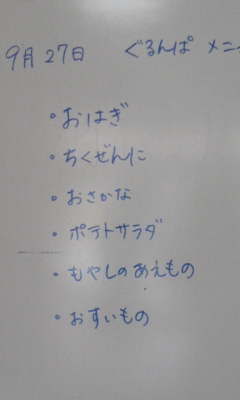 9月27日 ぐるんぱ メニ
・おはぎ
・ちくぜんに
・おさかな
・ポテトサラダ
・もやしのあえもの
・おすいもの